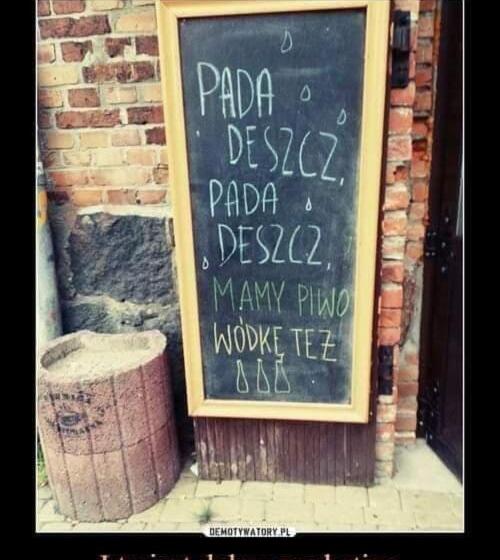 PADA
DESZCZ,
PADA
DESZCZ,
MAMY PIWO
WÓDKĘ TEŻ
DEMOTYWATORY.PL